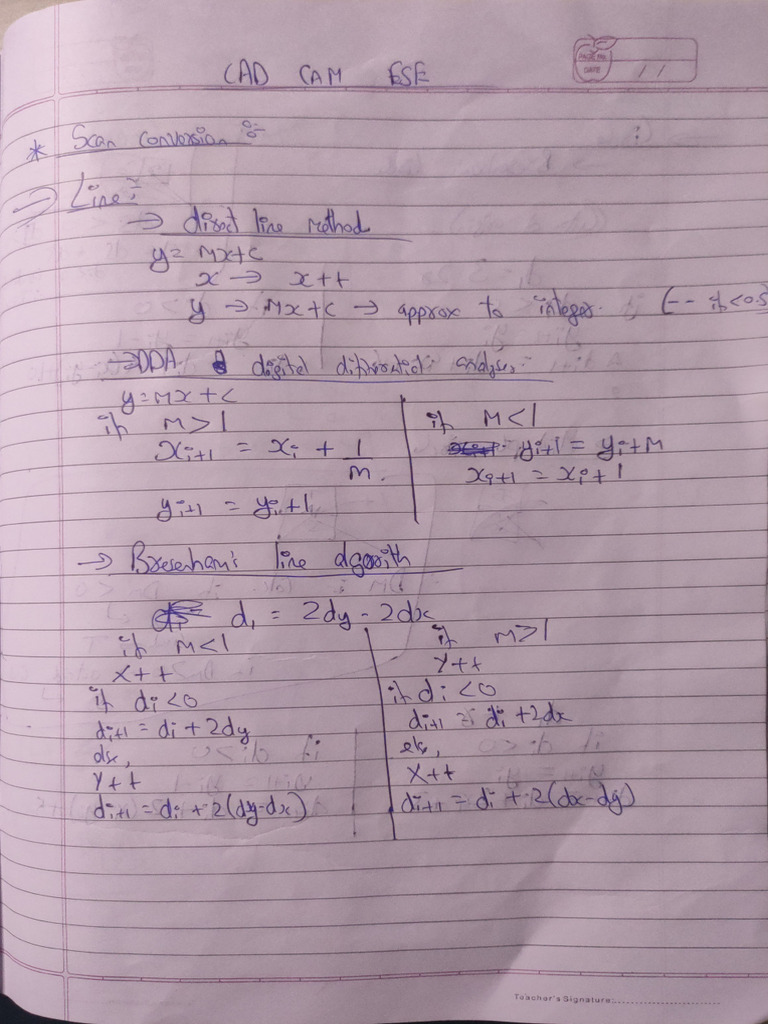 CAD CAM ESE
PAGE NO.
DATE / /
* Scan conversion :-
→ Line :-
→ direct line method
y = mx+c
x → x++
y → mx+c → approx to integer. (-- if <0.5
→ DDA digital
y = mx+c
if m>1
x_{i+1} = x_i + 1/m.
y_{i+1} = y_i+1
if m<1
y_{i+1} = y_i+m
x_{i+1} = x_i+1
→ Bresenham's line algorith
d_1 = 2dy - 2dx
if m<1
x++
if d_i <0
d_{i+1} = d_i + 2dy
else,
y++
d_{i+1} = d_i + 2(dy-dx)
if m>1
y++
if d_i <0
d_{i+1} = d_i +2dx
else,
x++
d_{i+1} = d_i + 2(dx-dy)
Teacher's Signature: